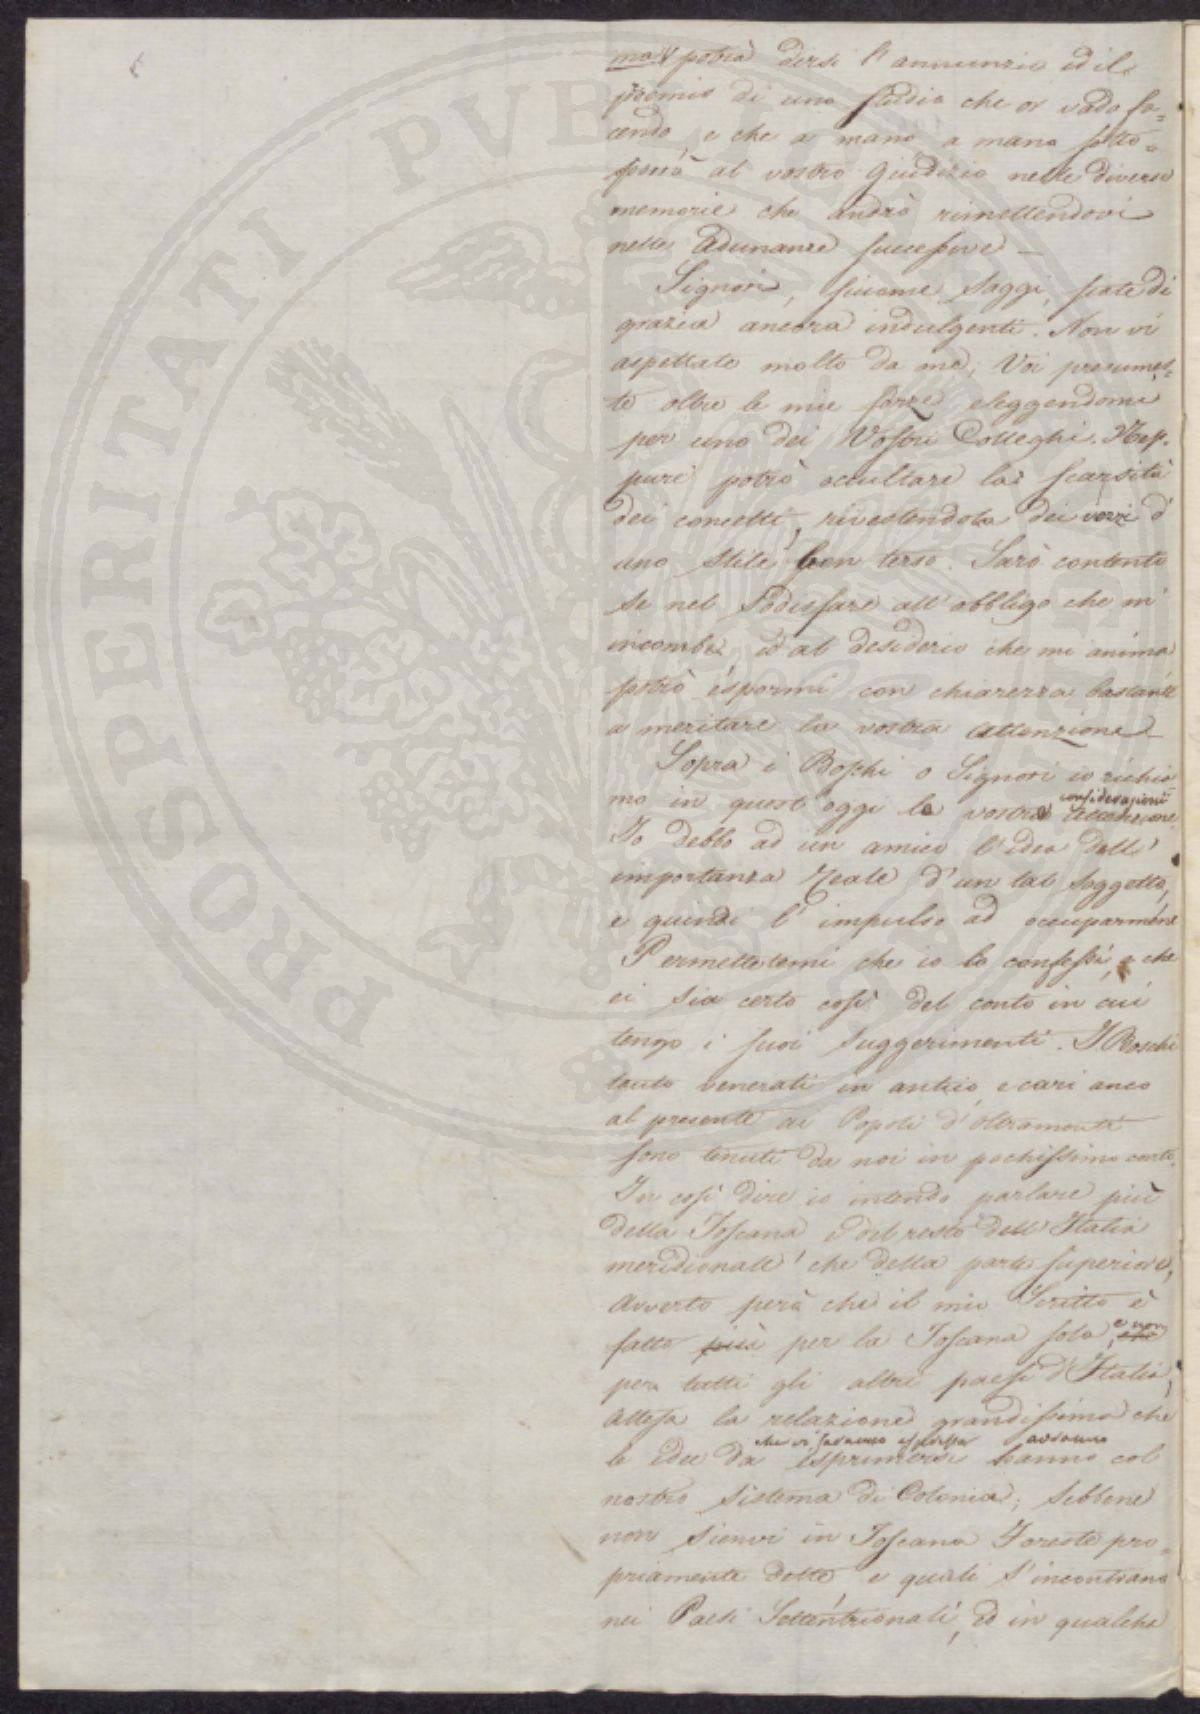 ma potrà dirsi l'annunzio ed il
premio di uno studio che or vado fa=
cendo, e che a mano a mano sotto=
porrò al vostro Giudizio nelle diverse
memorie che andrò rimettendovi
nelle Adunanze successive —
Signori, siccome saggi, siate di
grazia ancora indulgenti. Non vi
aspettate molto da me; Voi presumes=
te oltre le mie forze eleggendomi
per uno dei Vostri Colleghi. Nep.
pure potrò occultare la scarsità
dei concetti, rivestendola dei vezzi d'
uno stile ben terso. Sarò contento
se nel sodisfare all'obbligo che m'
incombe ed al desiderio che mi anima
potrò espormi con chiarezza bastante
a meritare la vostra attenzione —
Sopra i Boschi o Signori io richia
mo in quest'oggi le vostre considerazioni attenzione
Io debbo ad un amico l'idea dell'
importanza reale d'un tal soggetto,
e quindi l'impulso ad occuparmene
Permettetemi che io lo confessi, e che
ei sia certo così del conto in cui
tengo i suoi suggerimenti. I Boschi
tanto venerati in antico, e cari anco
al presente ai Popoli d'oltramonti
sono tenuti da noi in pochissimo conto.
In così dire io intendo parlare più
della Toscana e del resto dell'Italia
meridionale che della parte superiore,
Avverto però che il mio Scritto è
fatto più per la Toscana sola, e non che
per tutti gli altri paesi d'Italia,
Attesa la relazione grandissima che
che vi saranno espresse avranno
le idee da esprimersi hanno col
nostro sistema di Colonia; sebbene
non sienvi in Toscana Foreste pro=
priamente dette, e quali s'incontrano
nei Paesi Settentrionali, ed in qualche
PROSPERITATI PVBLICAE